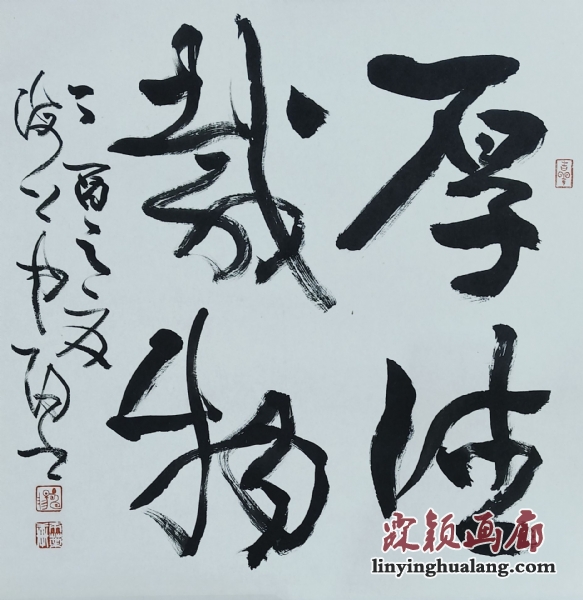 厚德
载物
丁酉之夏
霖颖画廊
linyinghualang.com